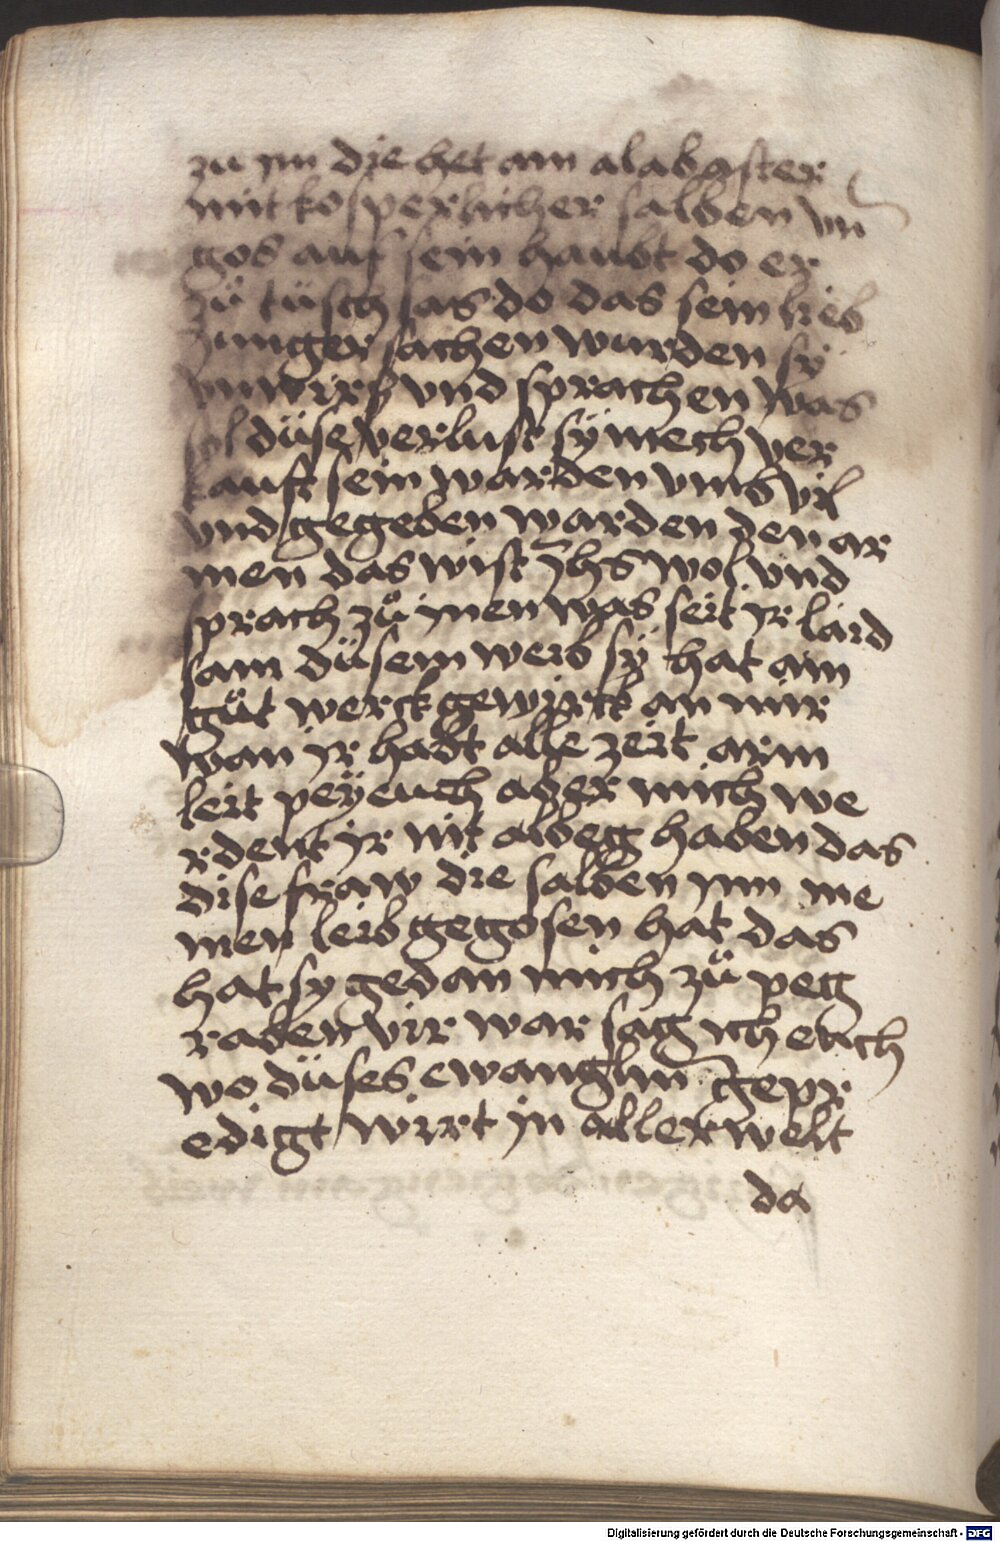 zu ym die het ain alabaster
mit kosperlicher salben vn
gos auf sein haubt do er
zü tüsch sas do das sein lieb
Junger sachen wurden sy
vnwirs vnd sprachen was
sol düse verlust sÿ mech ver
kauft sein warden vms vil
vnd gegeben warden den ar
men das wist Jhs wol vnd
sprach zů jnen was seit jr laid
sam düsem weib sÿ hat ain
gůt werck gewirck an mir
wan jr habt alle zeit arm
leit peÿ euch aber mich we
rdent jr nit albeg haben das
dise fraw die salben ynn me
inen leib gegosen hat das
hat sy gedan mich zů peg
raben vir war sag ich euch
wo düses ewanglim gepr
edigt wirt jn aller welt
da
Digitalisierung gefördert durch die Deutsche Forschungsgemeinschaft - DFG